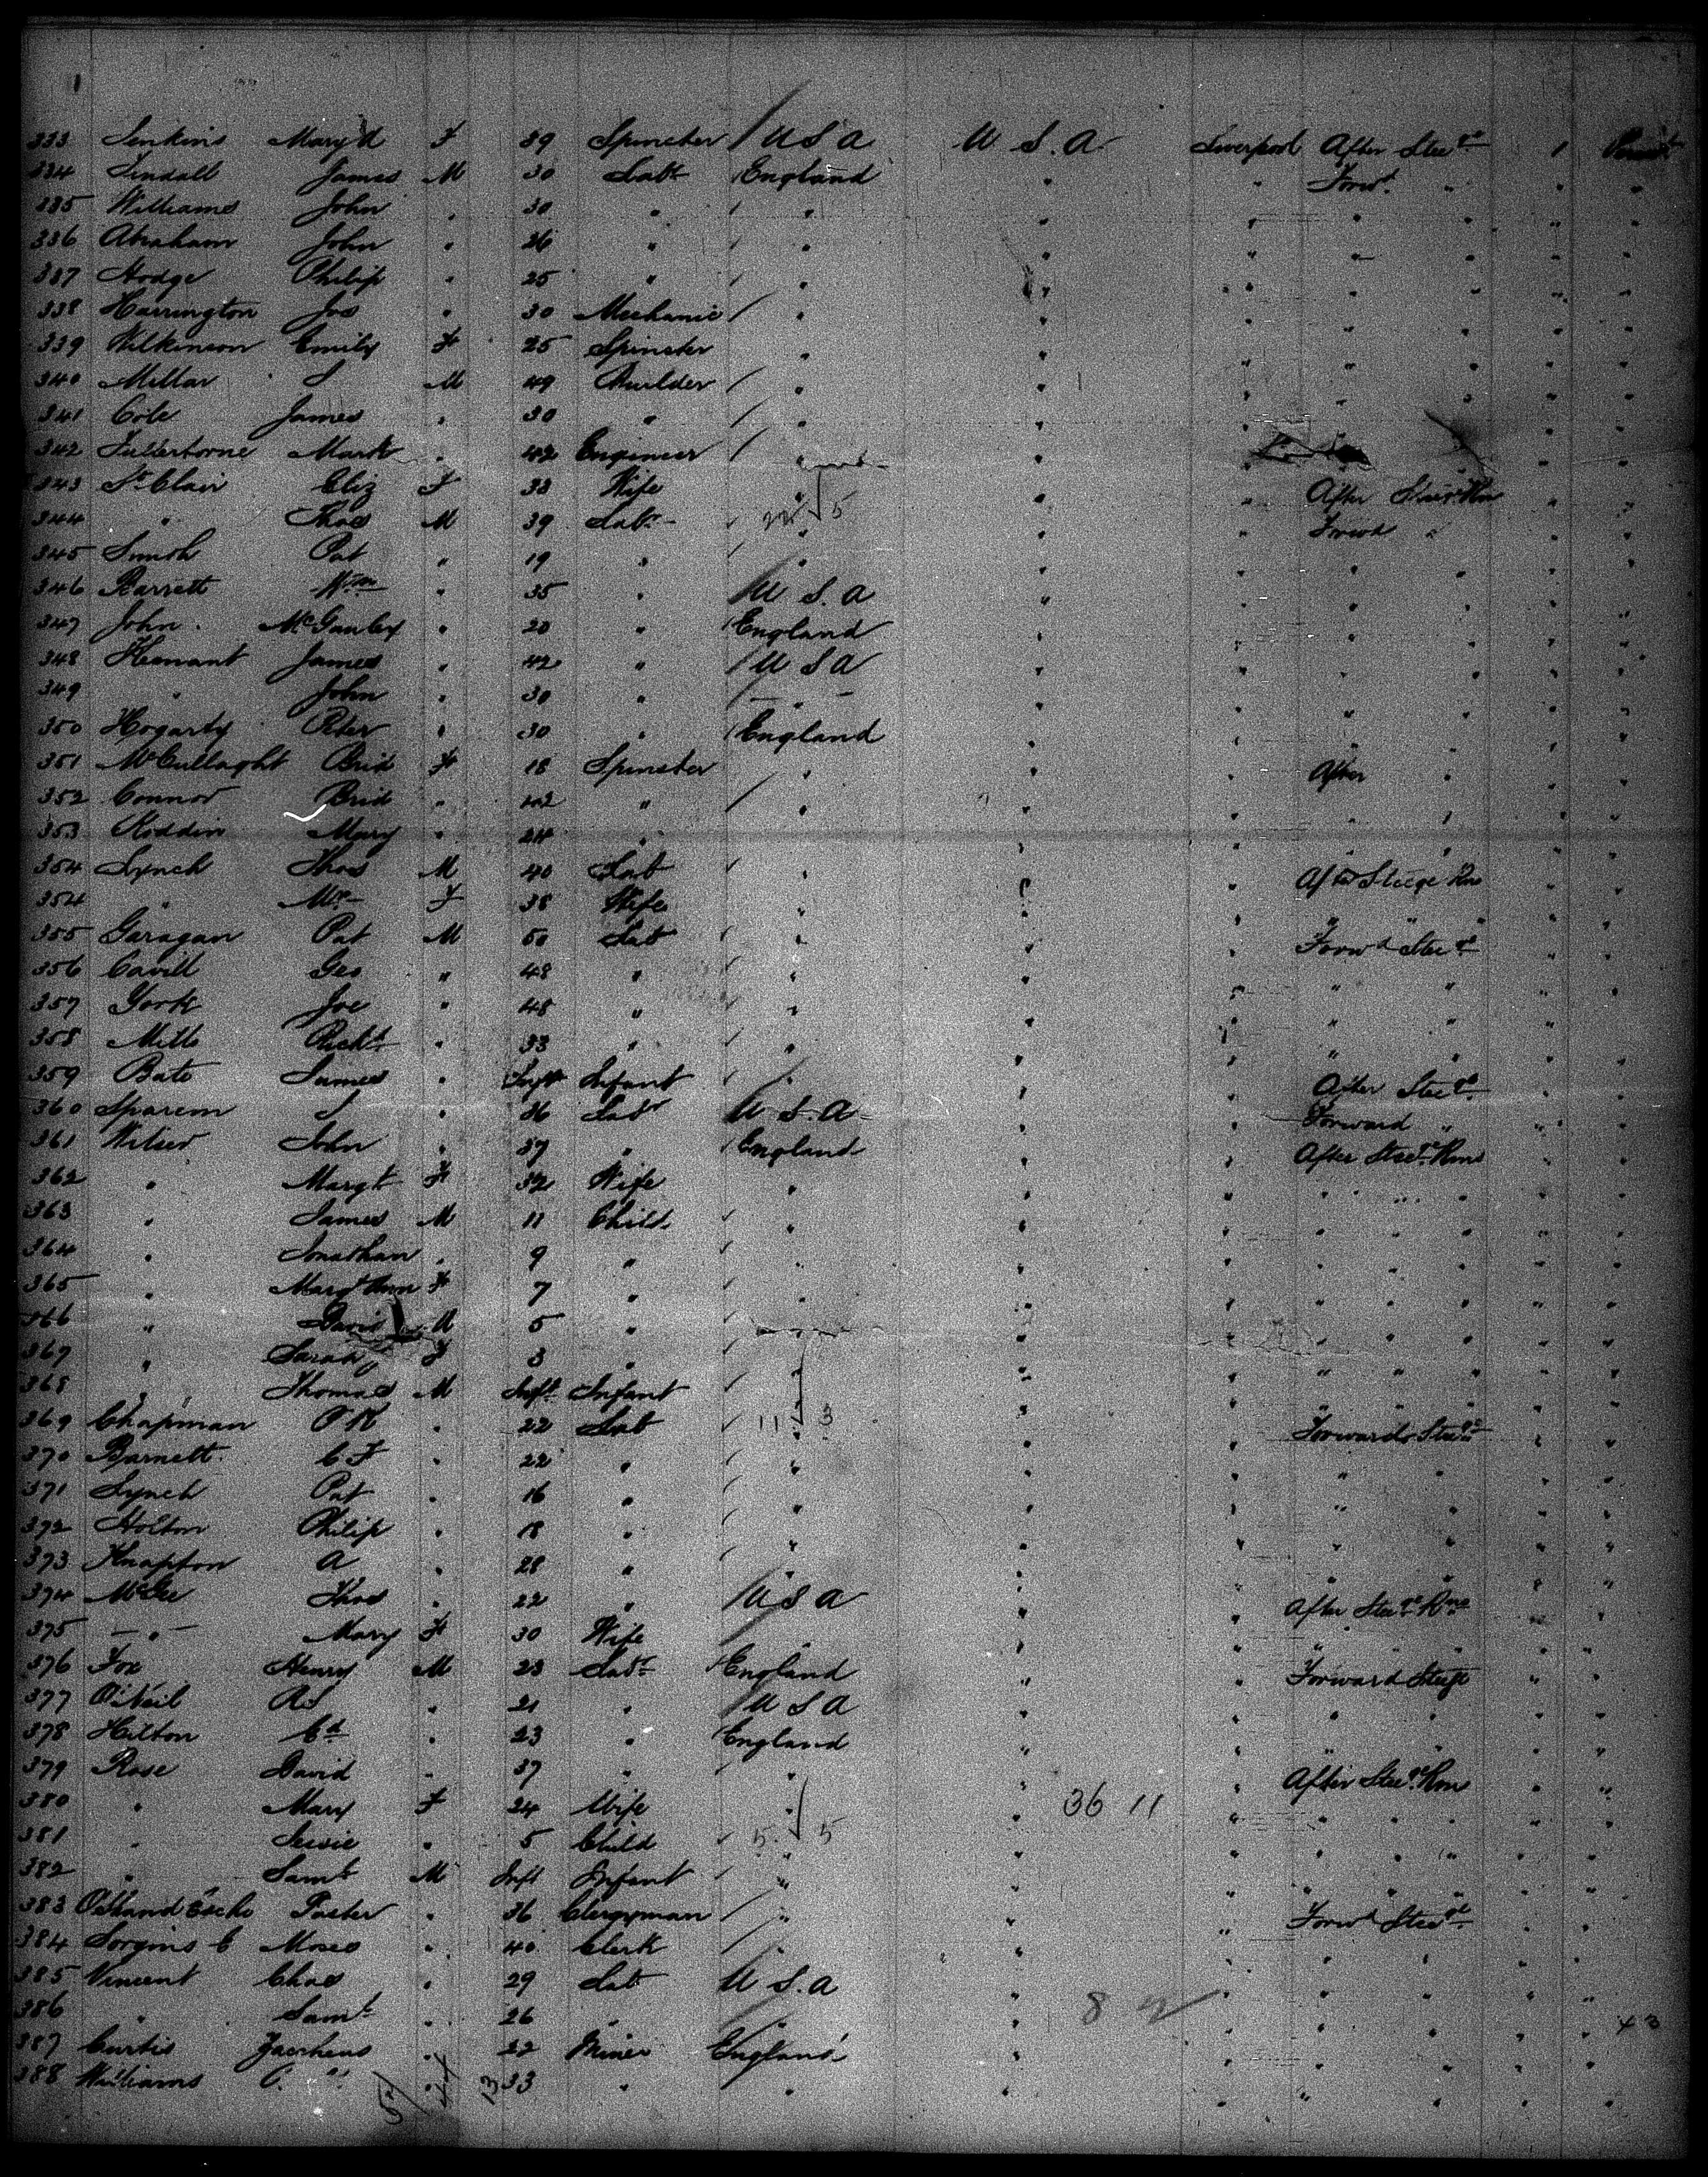 333 Jenkins Mary A F 39 Spinster / U S A U. S. A. Liverpool After Stee 1
334 Tindall James M 30 Labr England " " Forwd " " "
335 Williams John " 30 " " " " " " " "
336 Abraham John " 36 " " " " " " " "
337 Hodge Philip " 25 " " " " " " " "
338 Harrington Jos " 30 Mechanic / " " " " " " "
339 Wilkinson Emily F 25 Spinster " " " " " " "
340 Millar S M 49 Builder / " " " " " " "
341 Cole James " 30 " / " " " " " " "
342 Mark " 42 Engineer / " " " " "
343 St Clair Eliz F 38 Wife " " " After Steer Rm " "
344 " Thos M 39 Labr " " Forwd " " "
345 Smith Pat " 19 " " " " " " " "
346 Barrett Wm " 35 " U S. A " " " " " "
347 John McGauley " 20 " England " " " " " "
348 Hemant James " 42 " / U S A " " " " " "
349 " John " 30 " — — " " " " " "
350 Hogarty Peter " 30 " England " " " " " "
351 McCullaght Brid F 18 Spinster " " " After " " "
352 Connor Brid " 42 " / " " " " " " "
353 Roddin Mary " 24 " " " " " " " "
354 Lynch Thos M 40 Lab " " " After Steege Rm " "
354 " Mrs F 38 Wife " " " " " " " "
355 Garagan Pat M 50 Lab " " " Forwd Stee " "
356 Cavill Geo " 48 " " " " " " " "
357 York Joe " 48 " " " " " " " "
358 Mills Richd " 33 " " " " " " " "
359 Bate James " Inft Infant " " " After Stee " "
360 Sparem S " 36 Labr U. S. A " " Forward " " "
361 John " 37 " England " " After Stee Rms " "
362 " Margt F 32 Wife " " " " " " " "
363 " James M 11 Child " " " " " " " "
364 " Jonathan " 9 " " " " " " " "
365 " Margt Ann F 7 " " " " " " " "
366 " David M 5 " " " " " " " "
367 " Sarah F 3 " " " " " " " "
368 " Thomas M Inft Infant " " " " " " "
369 Chapman " 22 Lab 11 3 " " Forward Stee " "
370 Barnett C F " 22 " " " " " " " "
371 Lynch Pat " 16 " " " " " " " "
372 Holton Philip " 18 " " " " " " " "
373 Knapton A " 28 " " " " " " " "
374 McGee Thos " 22 " / U S A " " After Stee Rms " "
375 — " — Mary F 30 Wife " " " " " "
376 Fox Henry M 23 Labr England " " Forward Steege " "
377 O'Neil " 21 " / U S A " " " " " "
378 Hilton Ed " 23 " England " " " " " "
379 Rose David " 37 " " " " After Stee Rms " "
380 " Mary F 24 Wife " " 36 11 " " " " "
381 " " 5 Child 5 5 " " " " " "
382 " Saml M Inft Infant " " " " " " "
383 Pastor " 36 Clergyman / " " " Forwd Stee " "
384 Moses " 40 Clerk / " " " " " " "
385 Vincent Chas " 29 Lab U S. A " " " " " "
386 " Saml " 26 " " " 8 " " " " "
387 Curtis " 22 Miner England " " " " " "
388 Williams " 33 " " " " " " " "